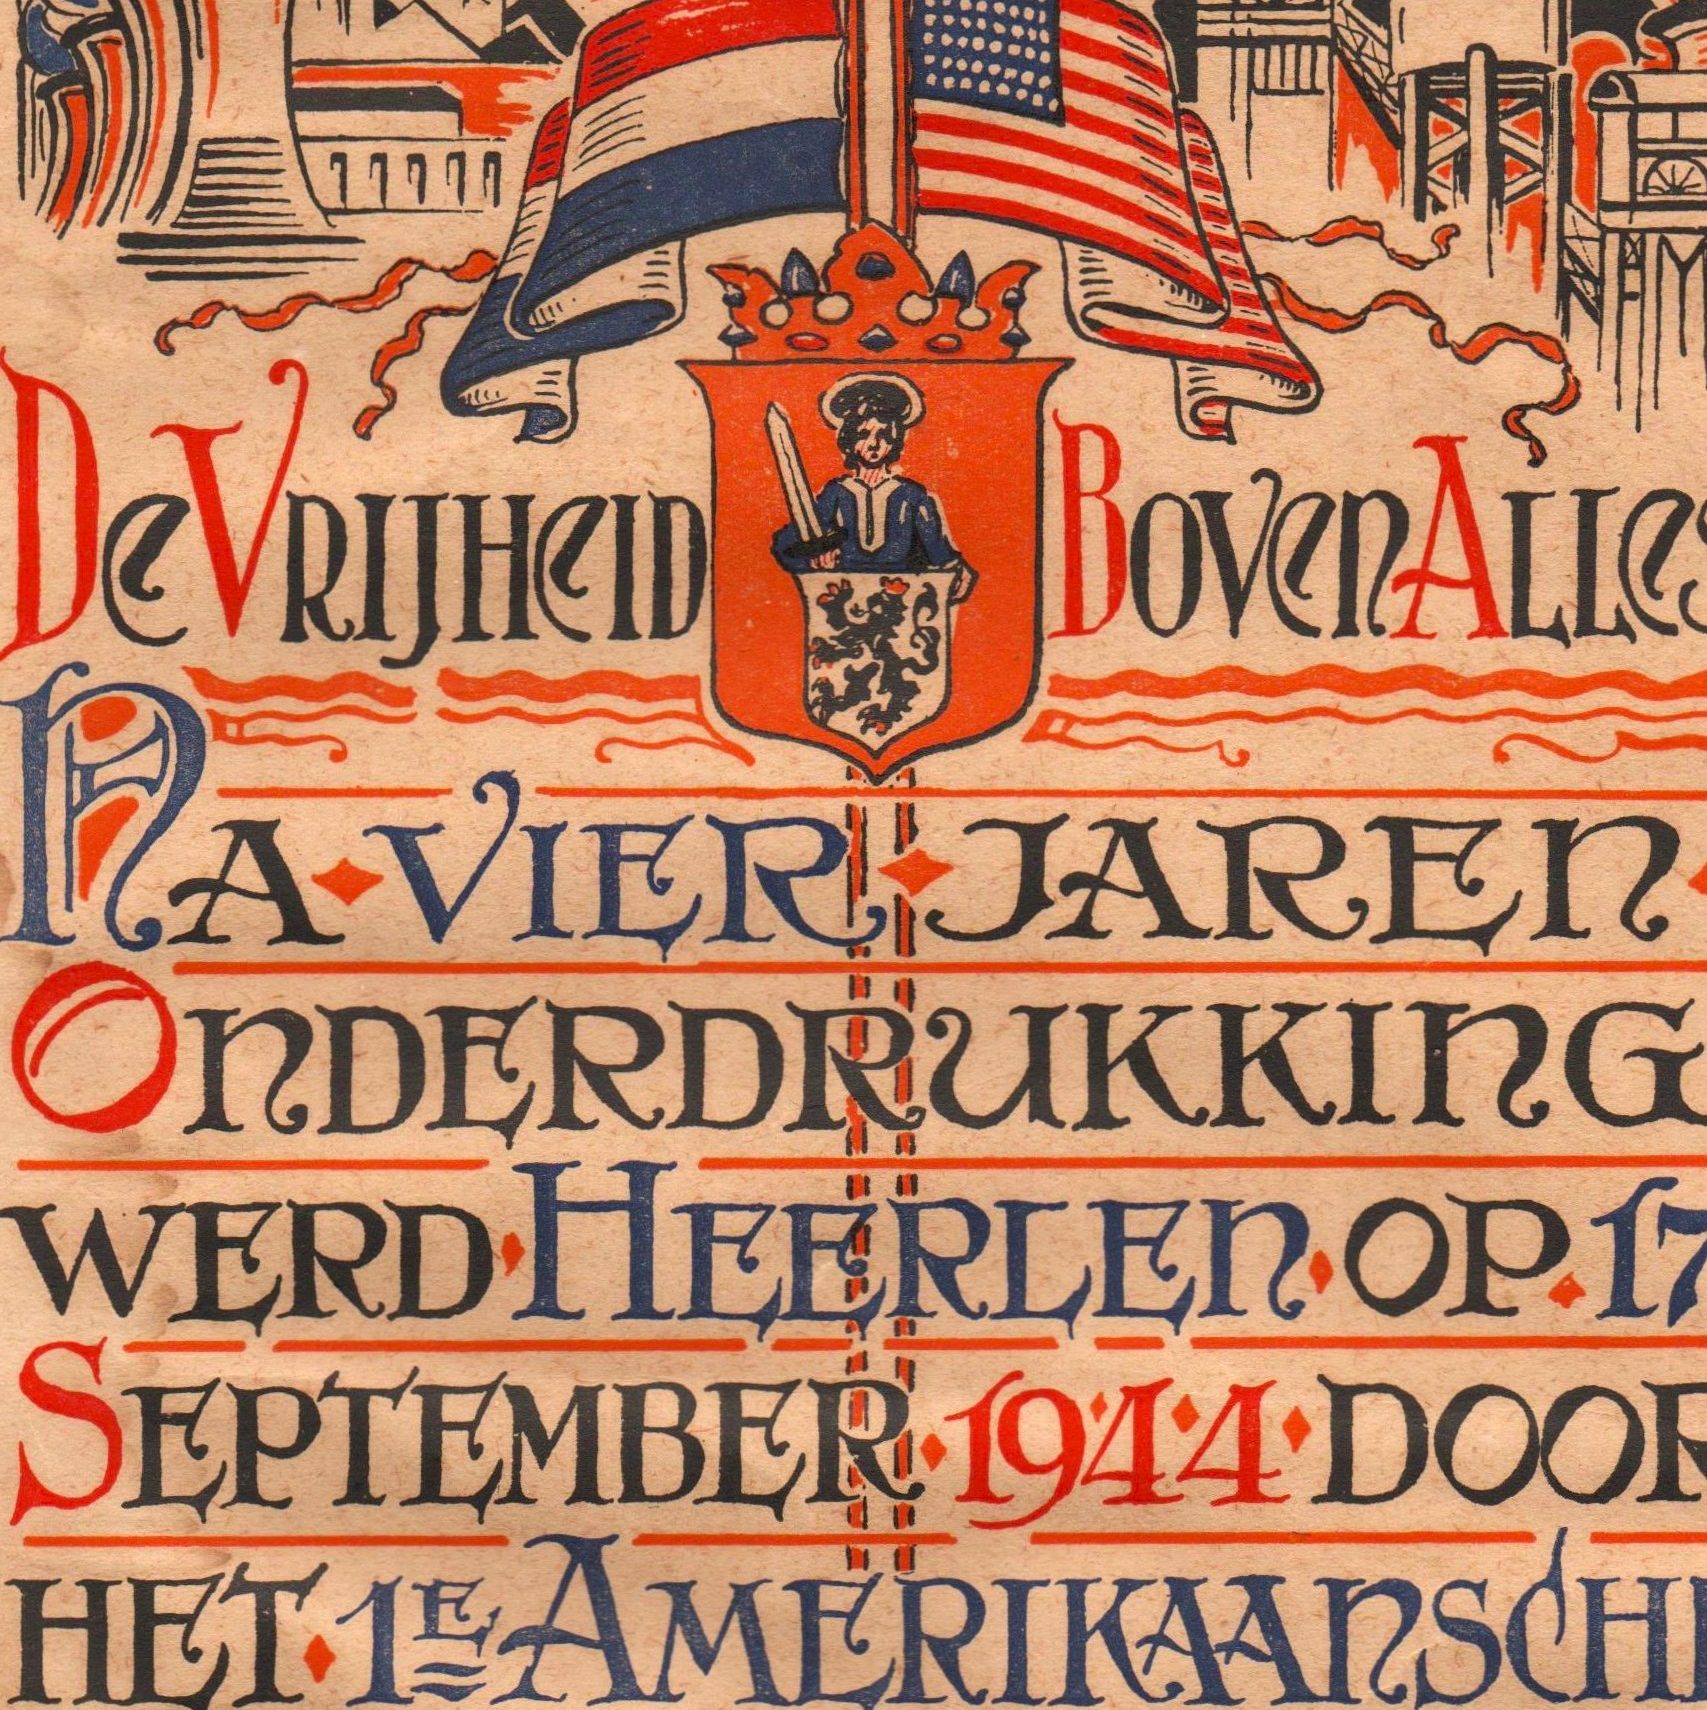 De Vrijheid Boven Alles
NA · VIER · JAREN ·
ONDERDRUKKING
WERD · HEERLEN · OP · 17
SEPTEMBER · 1944 · DOOR
HET · 1E AMERIKAANSCHE